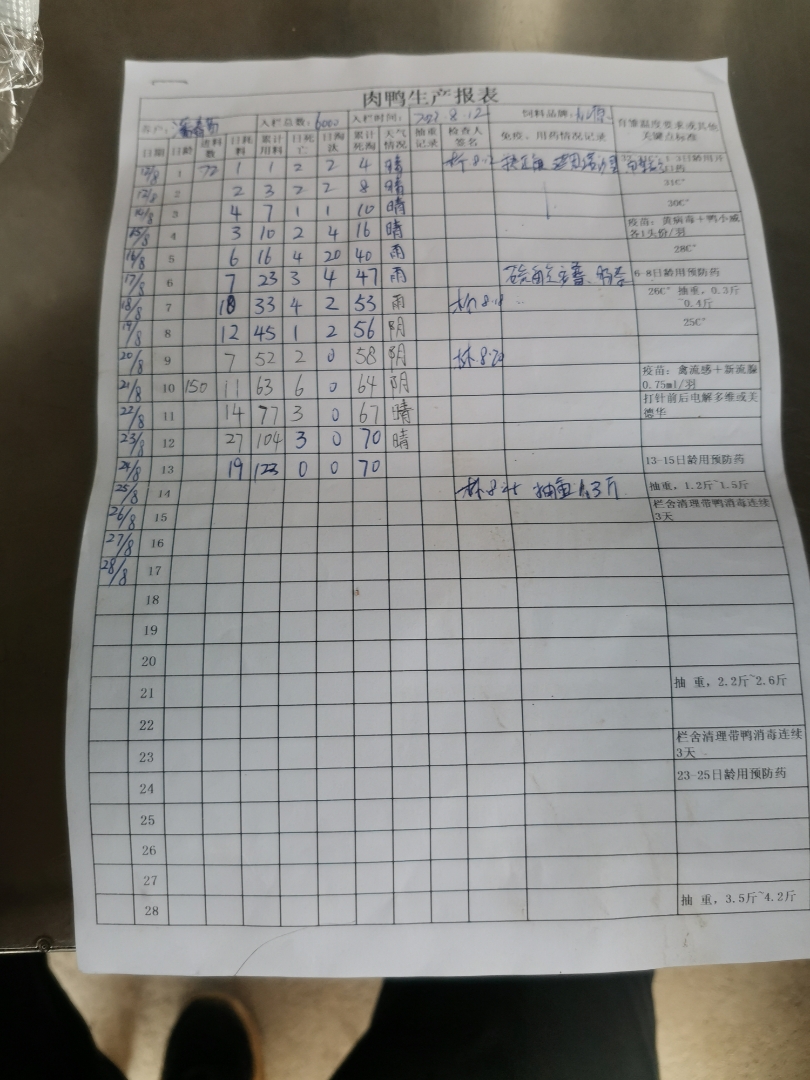 肉鸭生产报表
客户： 入栏总数：6000 入栏时间： 8.12 饲料品牌：
日期 日龄 进料数 日耗料 累计用料 日死亡 日淘汰 累计死淘 天气情况 抽重记录 检查人签名 免疫、用药情况记录 育雏温度要求或其他关键点标准
12/8 1 72 1 1 2 2 4 晴 1-3日龄用开口药
2 2 3 2 2 8 晴 31C°
3 4 7 1 1 10 晴 30C°
15/8 4 3 10 2 4 16 晴 疫苗：黄病毒+鸭小减各1头份/羽
16/8 5 6 16 4 20 40 雨 28C°
17/8 6 7 23 3 4 47 雨 6-8日龄用预防药
18/8 7 10 33 4 2 53 雨 林8.18 26C° 抽重，0.3斤~0.4斤
19/8 8 12 45 1 2 56 阴 25C°
20/8 9 7 52 2 0 58 阴 林8.20
21/8 10 150 11 63 6 0 64 阴 疫苗：禽流感+新流腺0.75ml/羽
22/8 11 14 77 3 0 67 晴 打针前后电解多维或美德华
23/8 12 27 104 3 0 70 晴
24/8 13 19 123 0 0 70 13-15日龄用预防药
25/8 14 林8.25 抽重1.3斤 抽重，1.2斤~1.5斤
26/8 15 栏舍清理带鸭消毒连续3天
27/8 16
28/8 17
18
19
20
21 抽 重，2.2斤~2.6斤
22
23 栏舍清理带鸭消毒连续3天
24 23-25日龄用预防药
25
26
27
28 抽 重，3.5斤~4.2斤